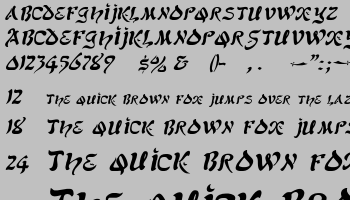 ABCDEFGHIJKLMNOPQRSTUVWXYZ
ABCDEFGHIJKLMNOPQRSTUVWXY
0123456789 $% & () , . "":;
12 THE QUICK BROWN FOX JUMPS OVER THE LAZ
18 THE QUICK BROWN FOX JUMPS
24 THE QUICK BROWN FOX